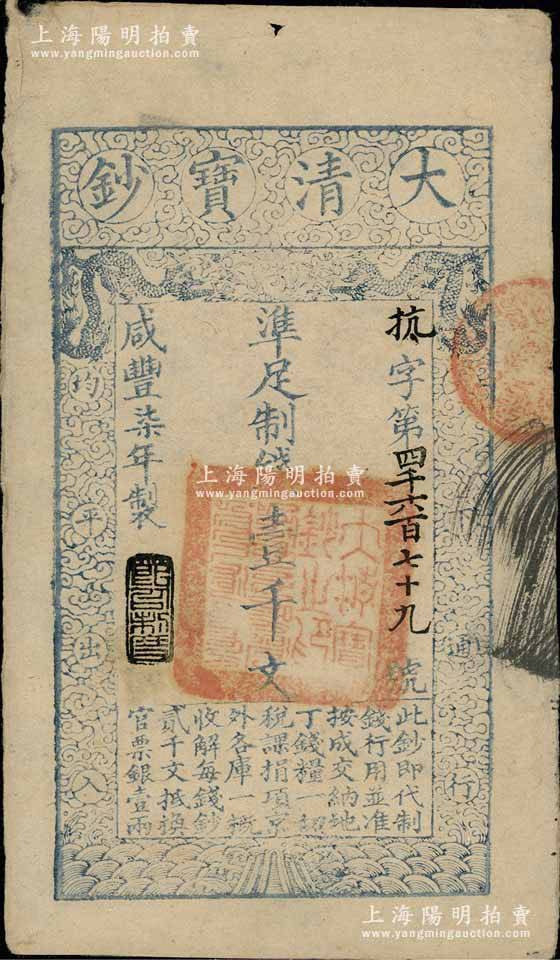 上海陽明拍賣
www.yangmingauction.com
大清寶鈔
抗字第四千六百七十九號
準足制錢壹千文
咸豐柒年製
均平出入
通行
此鈔即代制
錢行用並准
按成交納地
丁錢糧一切
稅課捐項京
外各庫一概
收解每錢鈔
貳千文抵換
官票銀壹兩
上海陽明拍賣
www.yangmingauction.com
上海陽明拍賣
www.yangmingauction.com